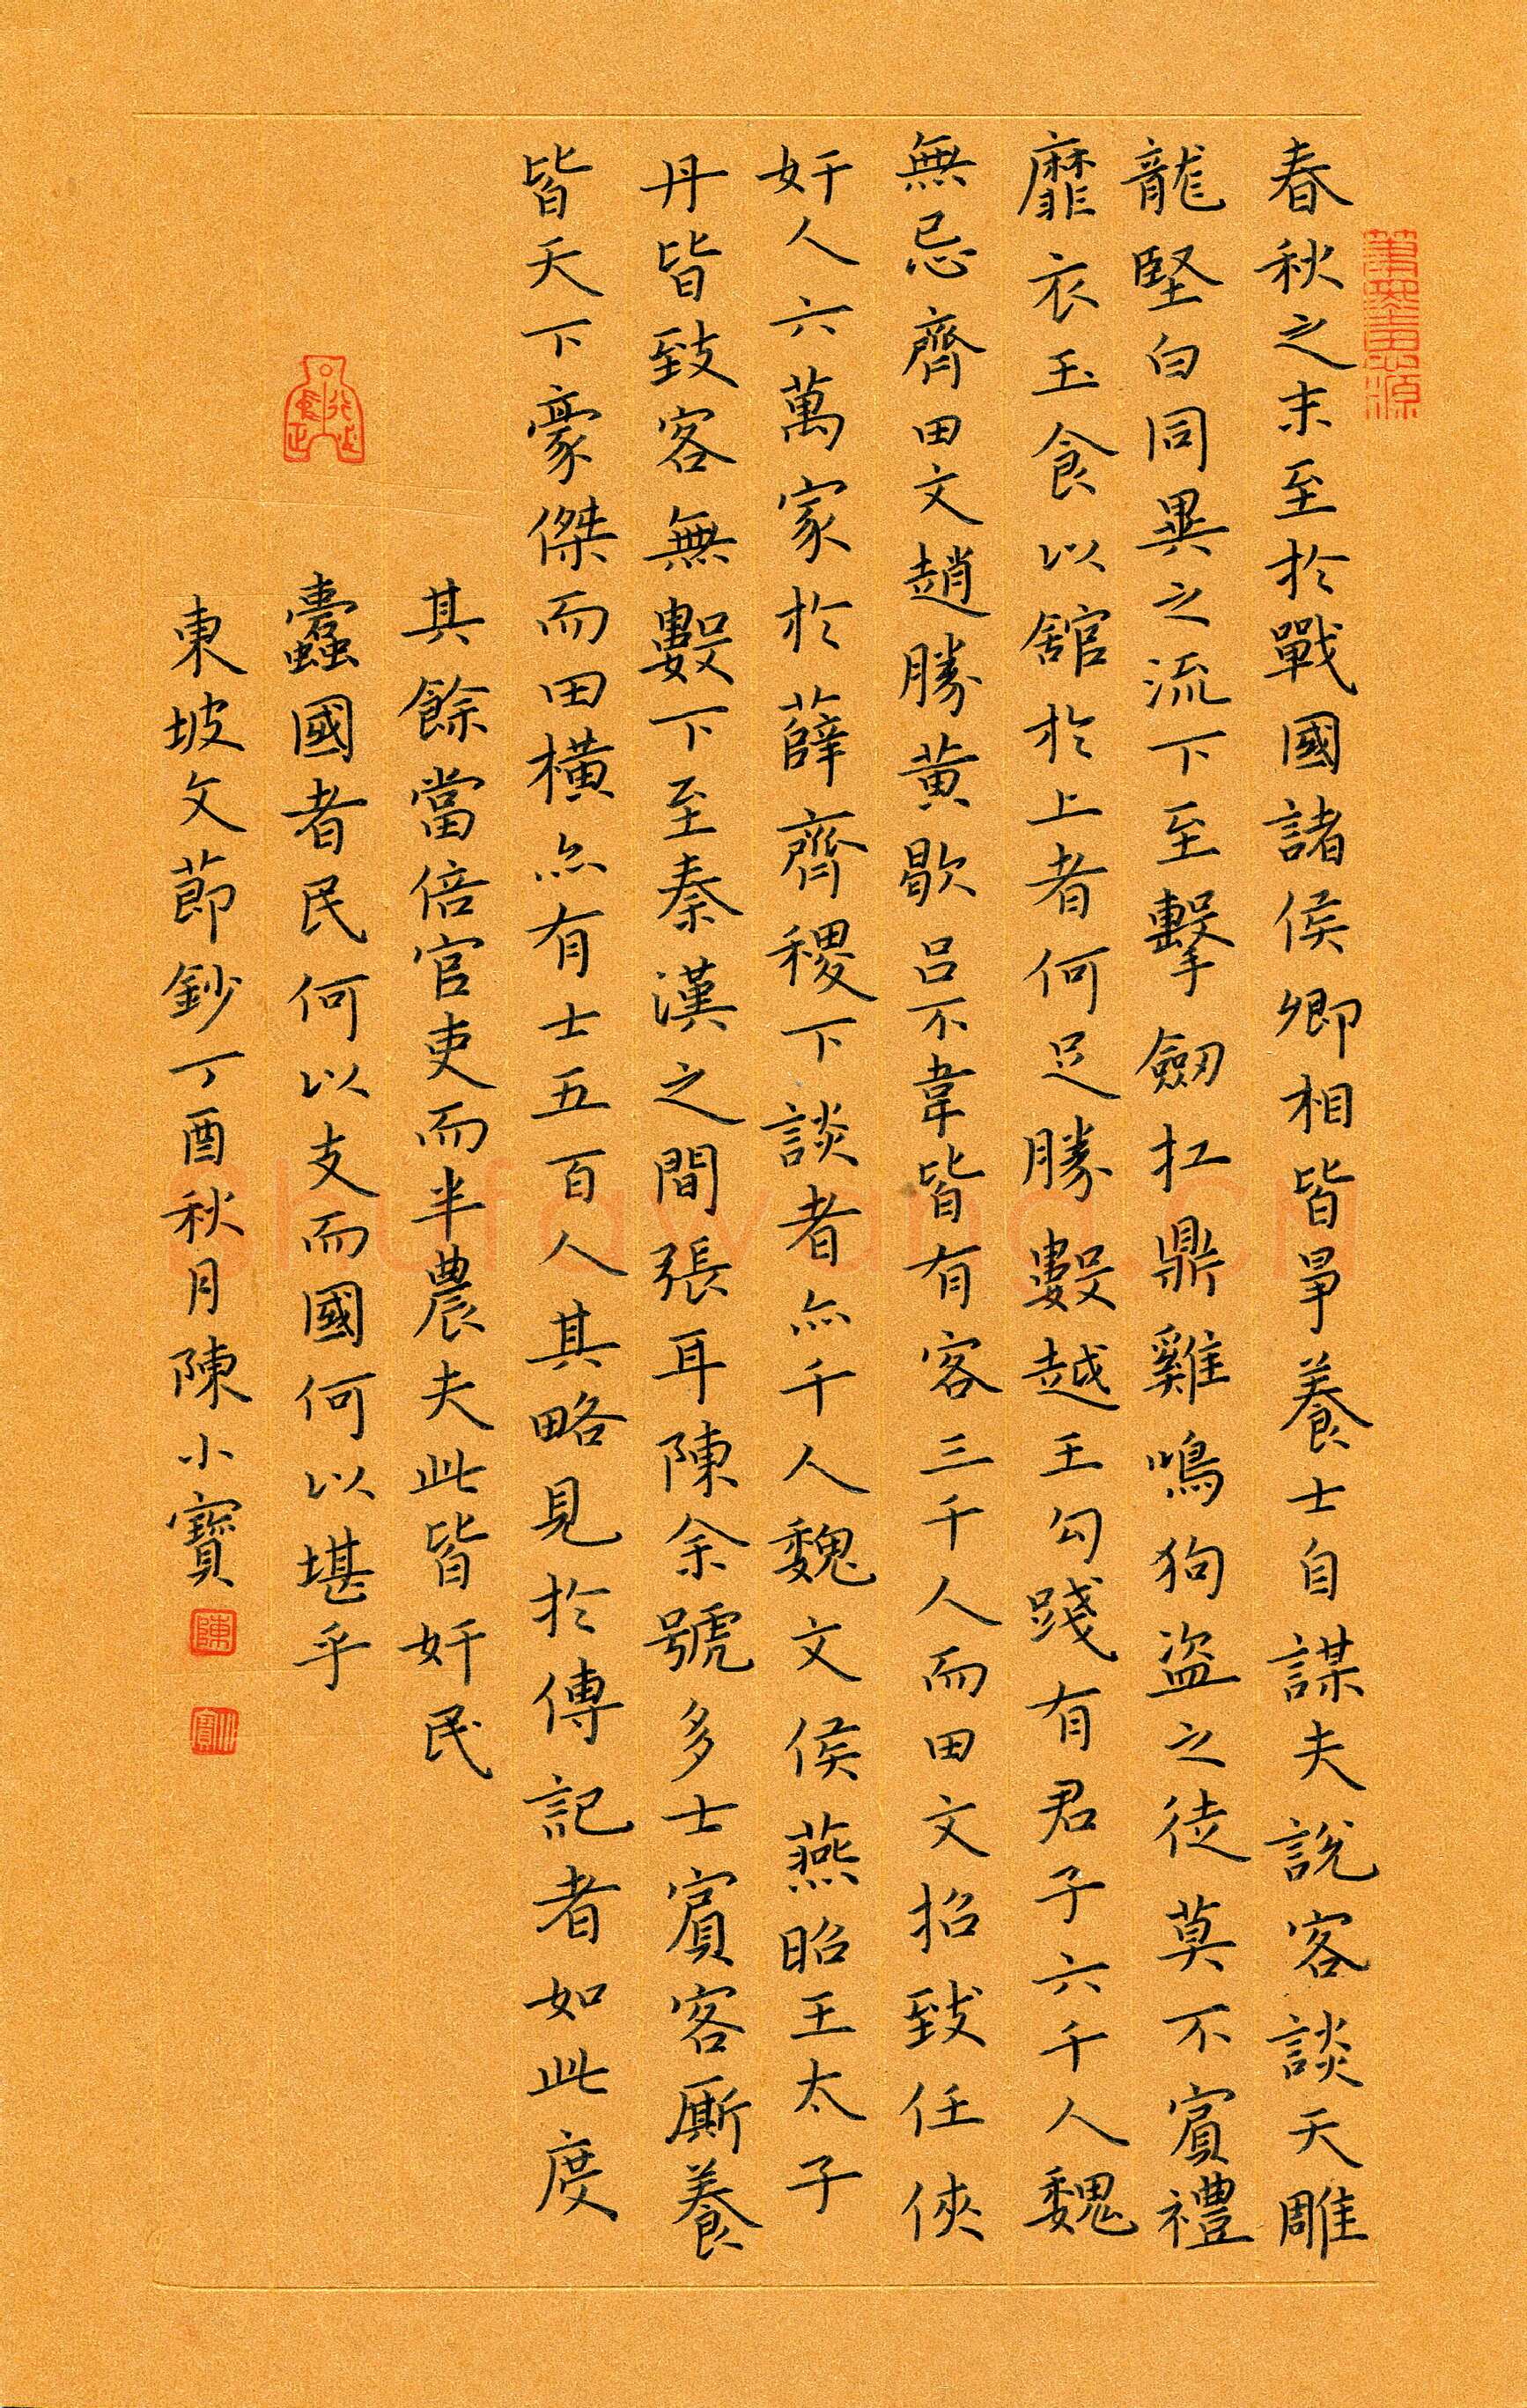 春秋之末至於戰國諸侯卿相皆爭養士自謀夫說客談天雕
龍堅白同異之流下至擊劔扛鼎雞鳴狗盜之徒莫不賓禮
靡衣玉食以舘於上者何足勝數越王勾踐有君子六千人魏
無忌齊田文趙勝黃歇呂不韋皆有客三千人而田文招致任俠
奸人六萬家於薛齊稷下談者亦千人魏文侯燕昭王太子
丹皆致客無數下至秦漢之間張耳陳余號多士賓客廝養
皆天下豪傑而田橫亦有士五百人其略見於傳記者如此度
其餘當倍官吏而半農夫此皆奸民
蠹國者民何以支而國何以堪乎
東坡文節鈔丁酉秋月陳小寶
陳
小寶
Shufawang.CN